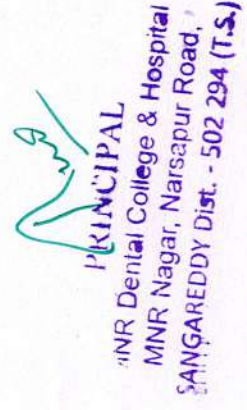 PRINCIPAL
MNR Dental College & Hospital
MNR Nagar, Narsapur Road,
SANGAREDDY Dist. - 502 294 (T.S.)